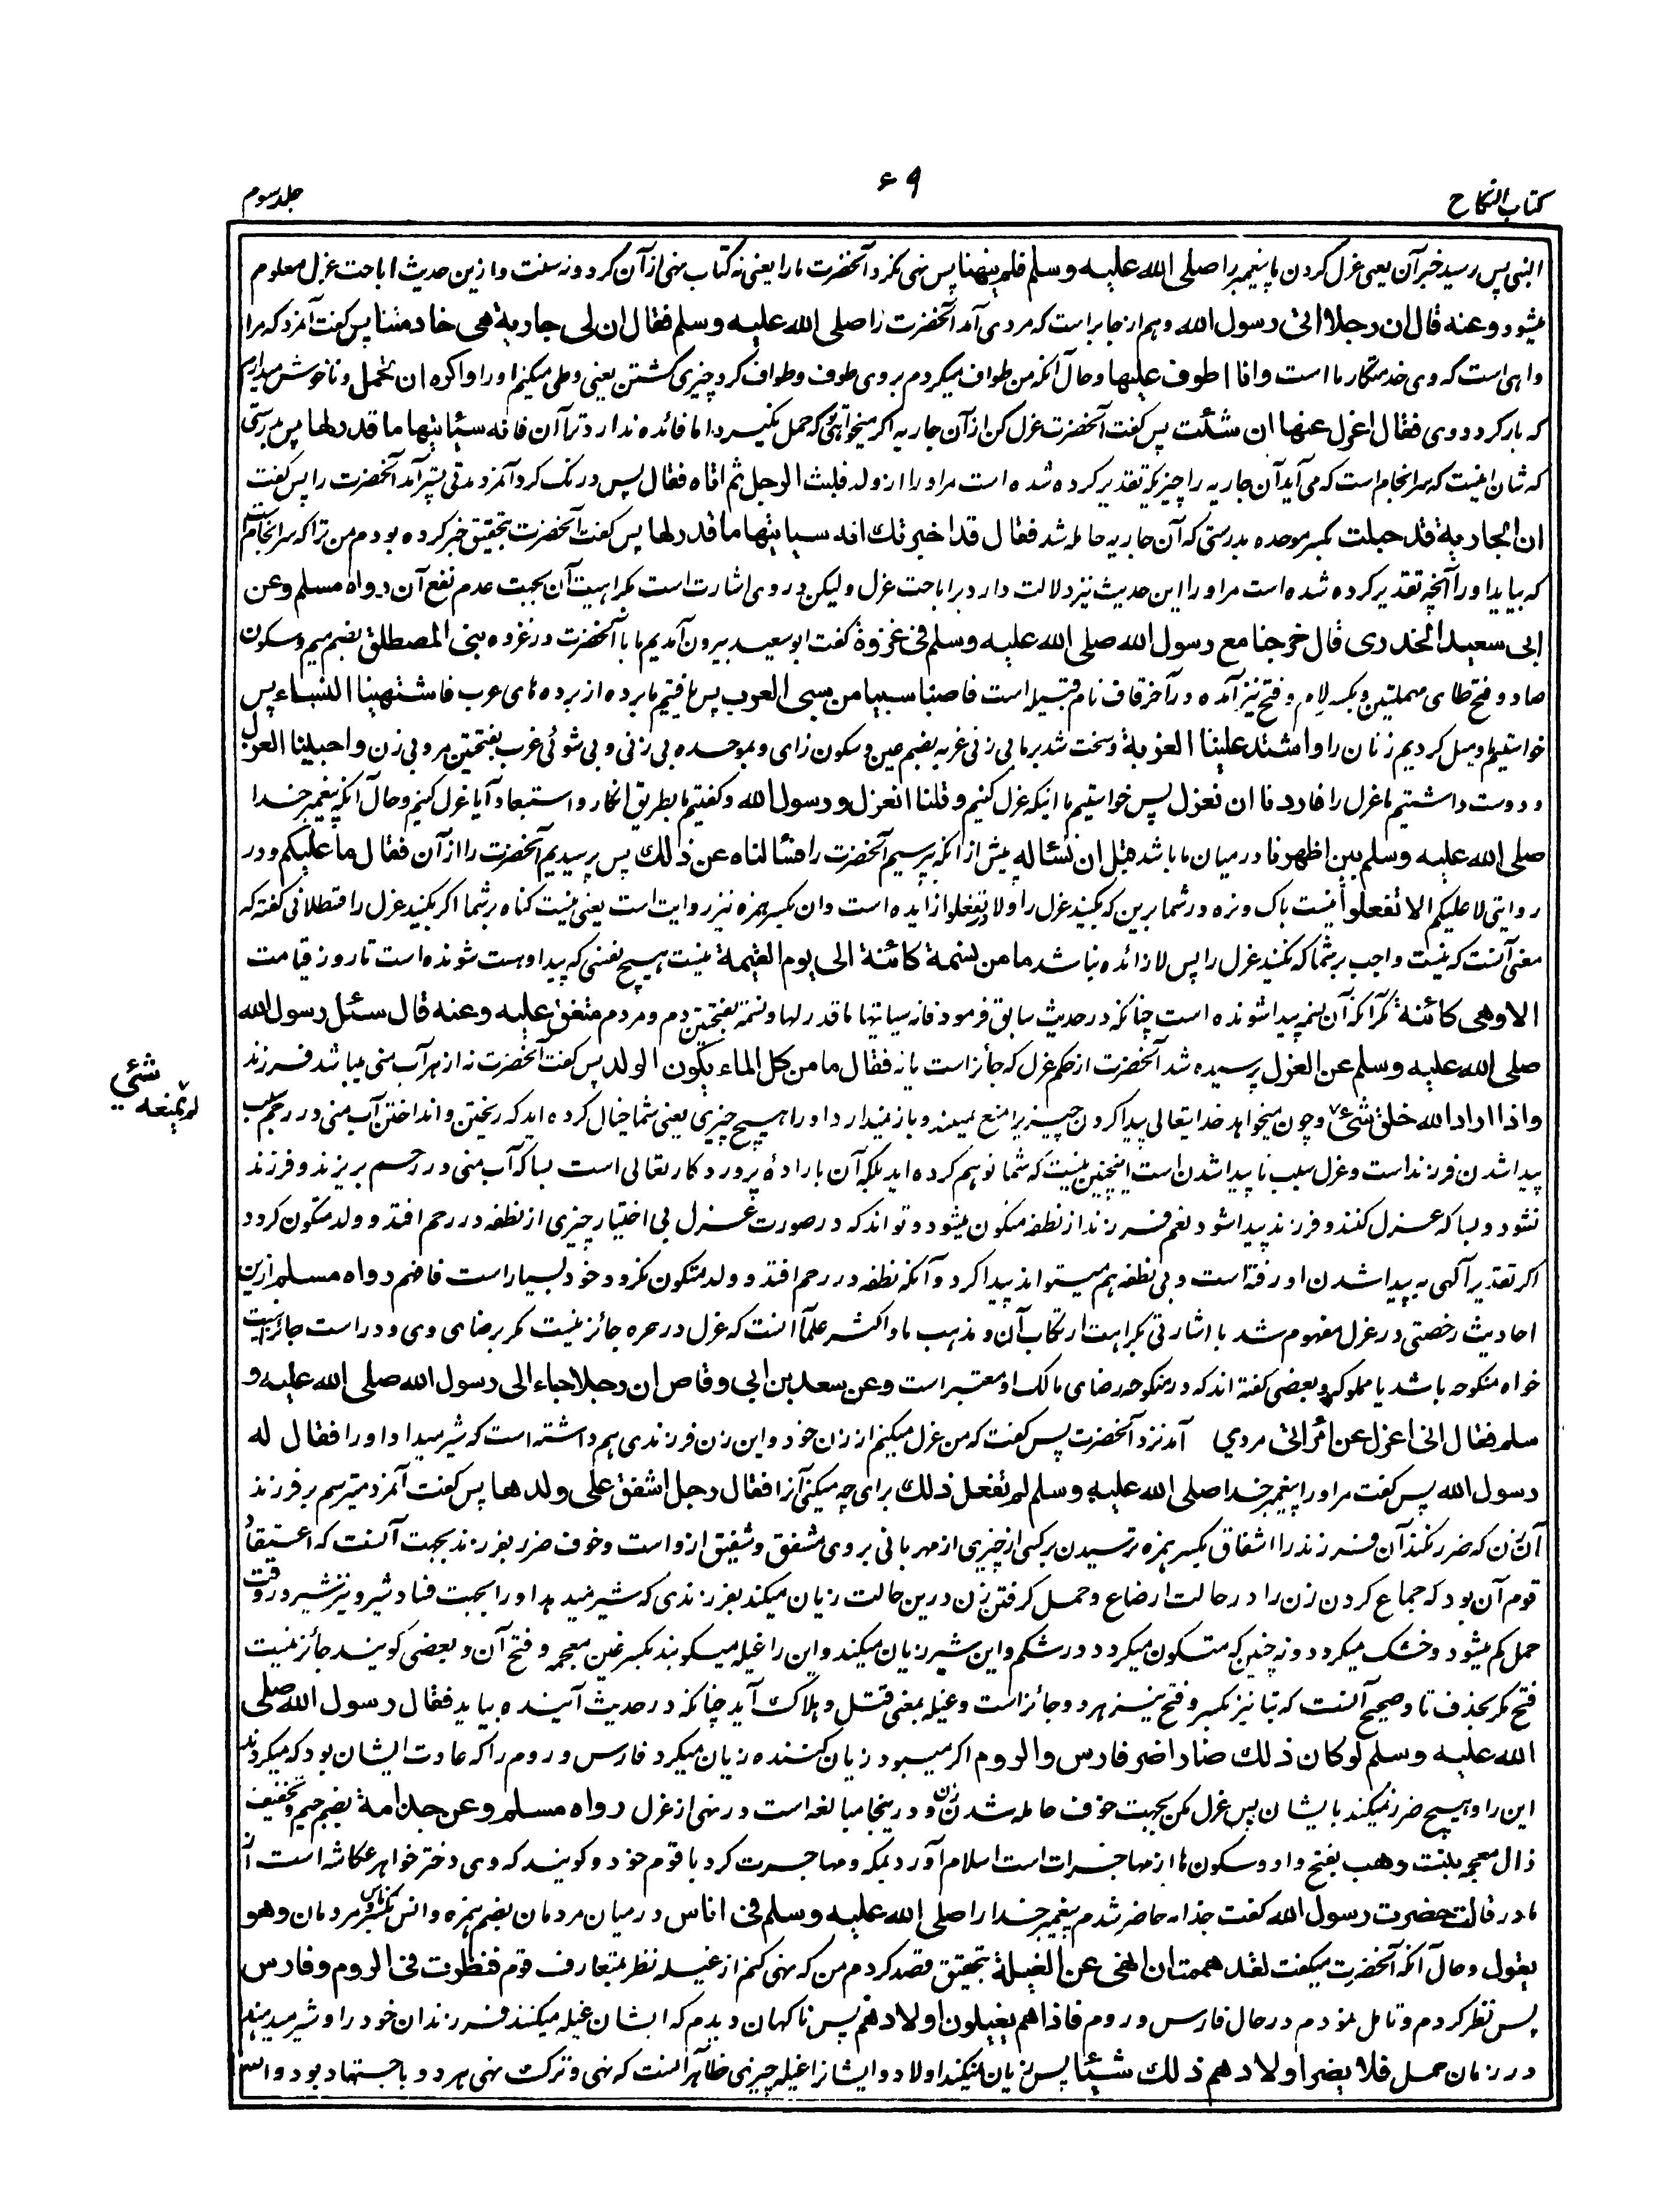 کتاب النکاح
۶۹
جلد سوم
النبی پس رسید خبر آن یعنی عزل کردن ما پیغمبر را صلی الله علیه وسلم فلم ینهنا پس نهی نکرد آنحضرت ما را یعنی نه کتاب نهی از آن کرد و نه سنت و ازین حدیث اباحت عزل معلوم
میشود وعنه قال ان رجلا اتی رسول الله وهم از جابر است که مردی آمد آنحضرت را صلی الله علیه وسلم فقال ان لی جاریة هی خادمتنا پس گفت آنمرد که مرا
داهی است که وی خدمتگار ما است وانا اطوف علیها وحال آنکه من طواف میکردم بروی طوف وطواف گرد چیزی گشتن یعنی وطی میکنم او را واکره ان تحمل وناخوش میدارم
که بار گردد وی فقال اعزل عنها ان شئت پس گفت آنحضرت عزل کن از آن جاریه اگر میخواهی تو که حمل نگیرد اما فائده ندارد ترا آن فانه سیاتیها ما قدر لها پس بدرستی
که شان اینست که سرانجام است که می آید آن جاریه را چیزیکه تقدیر کرده شده است مر او را از ولد فلبث الرجل ثم اتاه فقال پس درنگ کرد آنمرد مدتی پستر آمد آنحضرت را پس گفت
ان الجاریة قد حبلت بکسر موحده بدرستی که آن جاریه حامله شد فقال قد اخبرتک انه سیاتیها ما قدر لها پس گفت آنحضرت بتحقیق خبر کرده بودم من ترا که سرانجام است
که بیاید او را آنچه تقدیر کرده شده است مر او را این حدیث نیز دلالت دارد بر اباحت عزل ولیکن در وی اشارت است بکراهیت آن بجهت عدم نفع آن رواه مسلم وعن
ابی سعید الخدری قال خرجنا مع رسول الله صلی الله علیه وسلم فی غزوة گفت ابو سعید بیرون آمدیم ما با آنحضرت در غزوه بنی المصطلق بضم میم وسکون
صاد وفتح طای مهملتین وبکسر لام وفتح نیز آمده و در آخر قاف نام قبیله است فاصبنا سبیا من سبی العرب پس یافتیم ما برده از برده های عرب فاشتهینا النساء پس
خواستیم ومیل کردیم زنان را واشتد علینا العزبة وسخت شد بر ما بی زنی عزبه بضم عین وسکون زای وبموحده بی زنی وبی شوئی عزب بفتحتین مرد بی زن واحببنا العزل
ودوست داشتیم ما عزل را فاردنا ان نعزل پس خواستیم ما اینکه عزل کنیم وقلنا انعزل ورسول الله وگفتیم ما بطریق انکار واستبعاد آیا عزل کنیم وحال آنکه پیغمبر خدا
صلی الله علیه وسلم بین اظهرنا در میان ما باشد قبل ان نسئاله پیش از آنکه بپرسیم آنحضرت را فسئالناه عن ذلک پس پرسیدیم آنحضرت را از آن فقال ما علیکم ودر
روایتی لا علیکم الا تفعلوا نیست باک و بزه در شما برین که بکنید عزل را ولا در تفعلوا زایده است وان بکسر همزه نیز روایت است یعنی نیست گناه بر شما اگر بکنید عزل را قسطلانی گفته که
معنی آنست که نیست واجب بر شما که نکنید عزل را پس لا زائده نباشد ما من نسمة کائنة الی یوم القیمة نیست هیچ نفسی که پیدا وهست شونده است تا روز قیامت
الا وهی کائنة مگر آنکه آن نسمه پیدا شونده است چنانکه در حدیث سابق فرمود فانه سیاتیها ما قدر لها ونسمة بفتحتین دم ومردم متفق علیه وعنه قال سئل رسول الله
صلی الله علیه وسلم عن العزل پرسیده شد آنحضرت از حکم عزل که جائز است یا نه فقال ما من کل الماء یکون الولد پس گفت آنحضرت نه از هر آب منی میباشد فرزند
واذا اراد الله خلق شئ وچون میخواهد خدایتعالی پیدا کردن چیزیرا منع نمیکند وباز نمیدارد او را هیچ چیزی یعنی شما خیال کرده اید که ریختن وانداختن آب منی در رحم سبب
لم یمنعه شئی
پیدا شدن فرزند است وعزل سبب ناپیدا شدن است اینچنین نیست که شما توهم کرده اید بلکه آن بارادهٔ پروردگار تعالی است بسا که آب منی در رحم بریزند وفرزند
نشود وبسا که عزل کنند وفرزند پیدا شود نعم فرزند از نطفه متکون میشود وتواند که در صورت عزل بی اختیار چیزی از نطفه در رحم افتد و ولد متکون گردد
اگر تقدیر آلهی به پیدا شدن او رفته است وبی نطفه هم میتواند پیدا کرد وآنکه نطفه در رحم افتد و ولد متکون نگردد خود بسیار است فافهم رواه مسلم ازین
احادیث رخصتی در عزل مفهوم شد با اشارتی بکراهت ارتکاب آن ومذهب ما واکثر علما آنست که عزل در حره جائز نیست مگر برضای وی ودر امت جائز است
خواه منکوحه باشد یا مملوکه وبعضی گفته اند که در منکوحه رضای مالک او معتبر است وعن سعد بن ابی وقاص ان رجلا جاء الی رسول الله صلی الله علیه و
سلم فقال انی اعزل عن امرأتی مردی آمد نزد آنحضرت پس گفت که من عزل میکنم از زن خود واین زن فرزندی هم داشته است که شیر میداد او را فقال له
رسول الله پس گفت مر او را پیغمبر خدا صلی الله علیه وسلم لم تفعل ذلک برای چه میکنی آنرا فقال رجل اشفق علی ولدها پس گفت آنمرد میترسم بر فرزند
آن زن که ضرر نکند آن فرزند را اشفاق بکسر همزه ترسیدن بر کسی از چیزی از مهربانی بروی مشفق وشفیق ازو است وخوف ضرر بفرزند بجهت آنست که اعتقاد
قوم آن بود که جماع کردن زن را در حالت ارضاع وحمل گرفتن زن درین حالت زیان میکند بفرزندی که شیر میدهد او را بجهت فساد شیر ونیز شیر در وقت
حمل کم میشود وخشک میگردد ونه چنین که متکون میگردد در شکم واین شیر زیان میکند واین را غیله میگویند بکسر غین معجمه وفتح آن وبعضی گویند جائز نیست
فتح مگر بحذف تا وصحیح آنست که بتا نیز بکسر وفتح نیز هر دو جائز است وغیله بمعنی قتل وهلاک آید چنانکه در حدیث آینده بیاید فقال رسول الله صلی
الله علیه وسلم لو کان ذلک ضارا ضر فارس والروم اگر میبود زیان کننده زیان میکرد فارس وروم را که عادت ایشان بود که میکردند
این را وهیچ ضرر نمیکند بایشان پس عزل مکن بجهت خوف حامله شدن زن ودرینجا مبالغه است در نهی از عزل رواه مسلم وعن جذامة بضم جیم وتخفیف
ذال معجمه بنت وهب بفتح واو وسکون ها از مهاجرات است اسلام آورد بمکه ومهاجرت کرد با قوم خود وگویند که وی دختر خواهر عکاشه است از
مادر قالت حضرت رسول الله گفت جذامه حاضر شدم پیغمبر خدا را صلی الله علیه وسلم فی اناس در میان مردمان بضم همزه وانس بکسر مردمان وهو
یقول وحال آنکه آنحضرت میگفت لقد هممت ان انهی عن الغیلة بتحقیق قصد کردم من که نهی کنم از غیله نظر بمتعارف قوم فنظرت فی الروم وفارس
پس نظر کردم وتامل نمودم در حال فارس وروم فاذا هم یغیلون اولادهم پس ناگهان دیدم که ایشان غیله میکنند فرزندان خود را وشیر میدهند
در زمان حمل فلا یضر اولادهم ذلک شیئا پس زیان نمیکند اولاد ایشانرا غیله چیزی ظاهر آنست که نهی وترک نهی هر دو باجتهاد بود والله